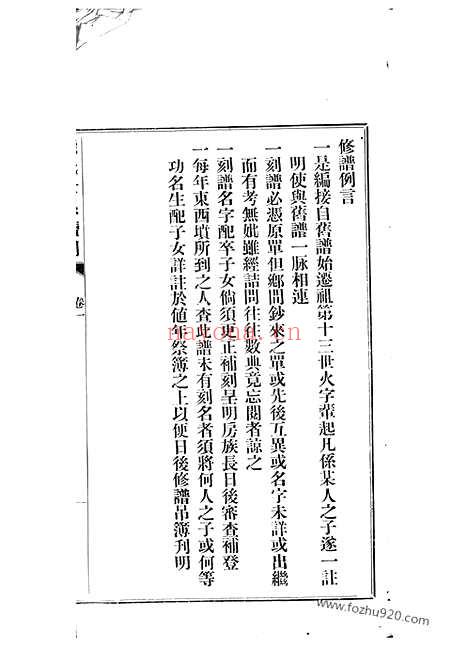 修譜例言
一是編接自舊譜始遷祖第十三世火字輩起凡係某人之子遂一註
明使與舊譜一脉相連
一刻譜必憑原單但鄉間鈔來之單或先後互異或名字未詳或出繼
而有考無妣雖經詰問往往數典竟忘閱者諒之
一刻譜名字配卒子女倘須更正補刻呈明房族長日後審查補登
一每年東西墳所到之人查此譜未有刻名者須將何人之子或何等
功名生配子女詳註於値年祭簿之上以便日後修譜吊簿刋明
卷一
natona.cn
www.fozhu920.com